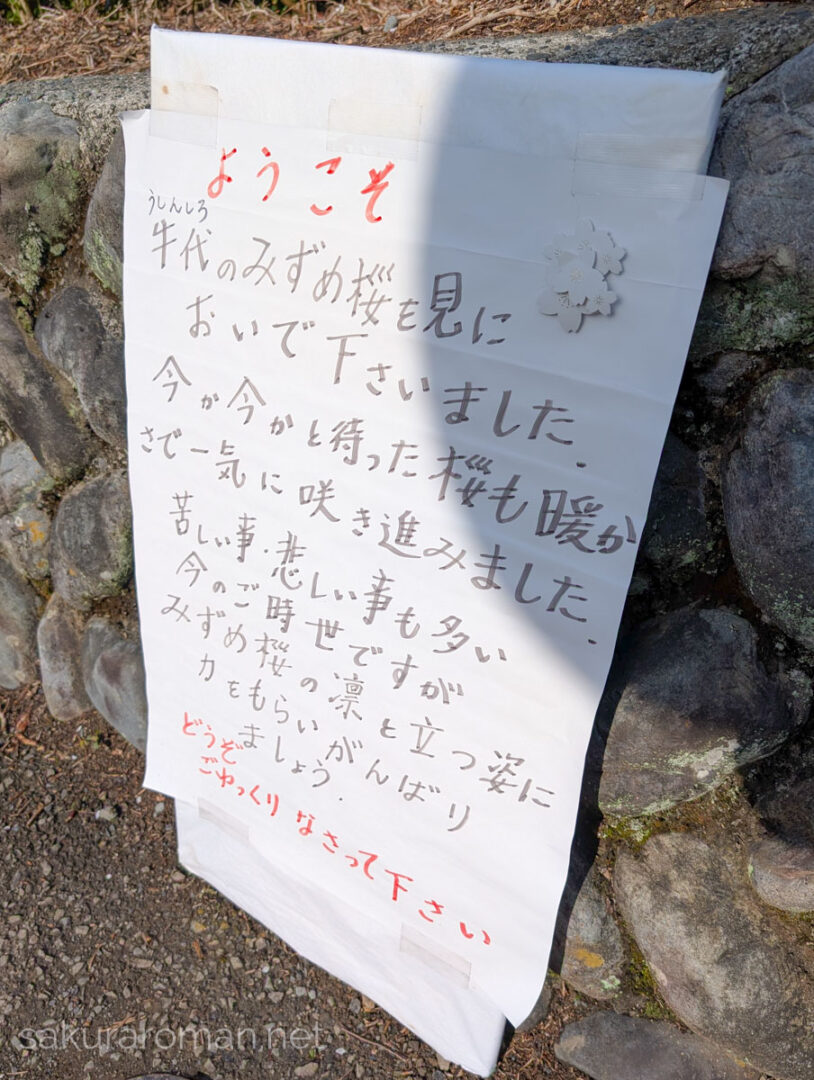 ようこそ
うしんしろ
牛代のみずめ桜を見に
おいで下さいました.
今か今かと待った桜も暖か
さで一気に咲き進みました.
苦しい事・悲しい事も多い
今のご時世ですが
みずめ桜の凛と立つ姿に
力をもらいがんばり
ましょう.
どうぞ
ごゆっくりなさって下さい
sakuraroman.net